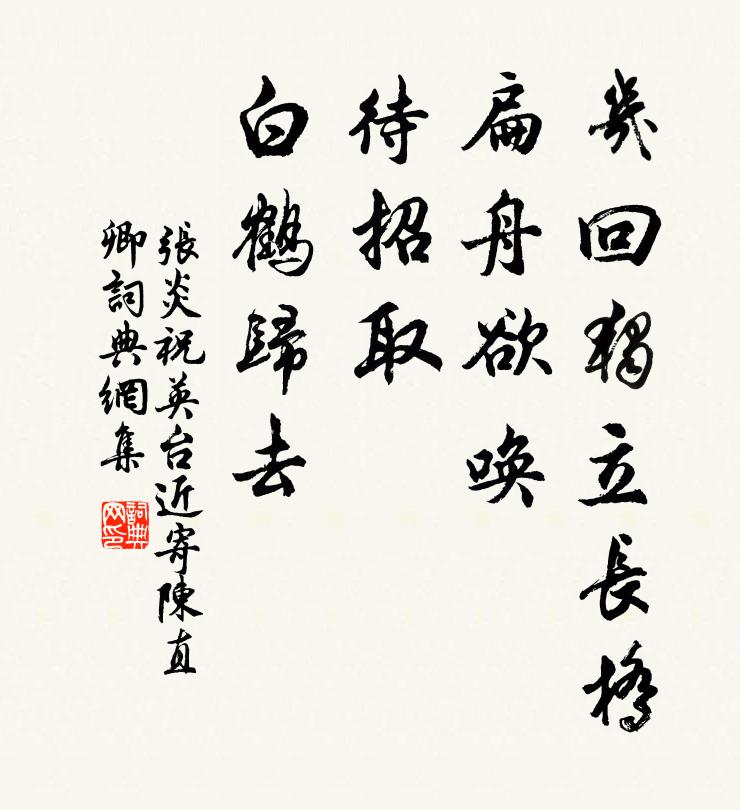 幾回獨立長橋
扁舟欲喚
待招取
白鶴歸去
張炎祝英台近寄陳直
卿詞典網集
詞典
网印